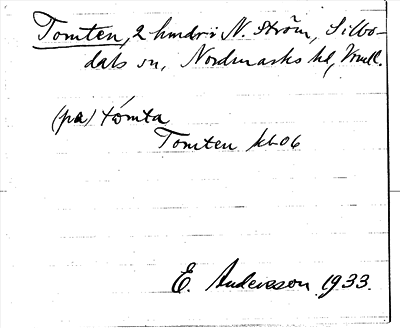 Tomten, 2 hmdr i N. Ström, Silbo-
dals sn, Nordmarks hd, Vrml.
(pa) tómta
Tomten kb 06
E. Andersson 1933.